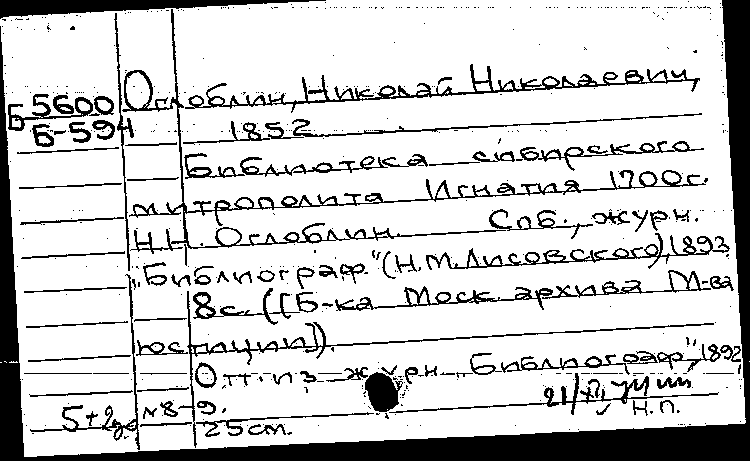 Оглоблин, Николай Николаевич,
Б 5600
Б-594
1852
Библиотека сибирского
митрополита Игнатия 1700г.
Н.Н. Оглоблин. Спб., журн.
„Библиограф" (Н.М.Лисовского), 1893
8с. ([Б-ка Моск. архива М-ва
юстиции]).
Отт. из журн. „Библиограф", 1892,
№8-9.
25см.
5+2
21/XII
Н.П.